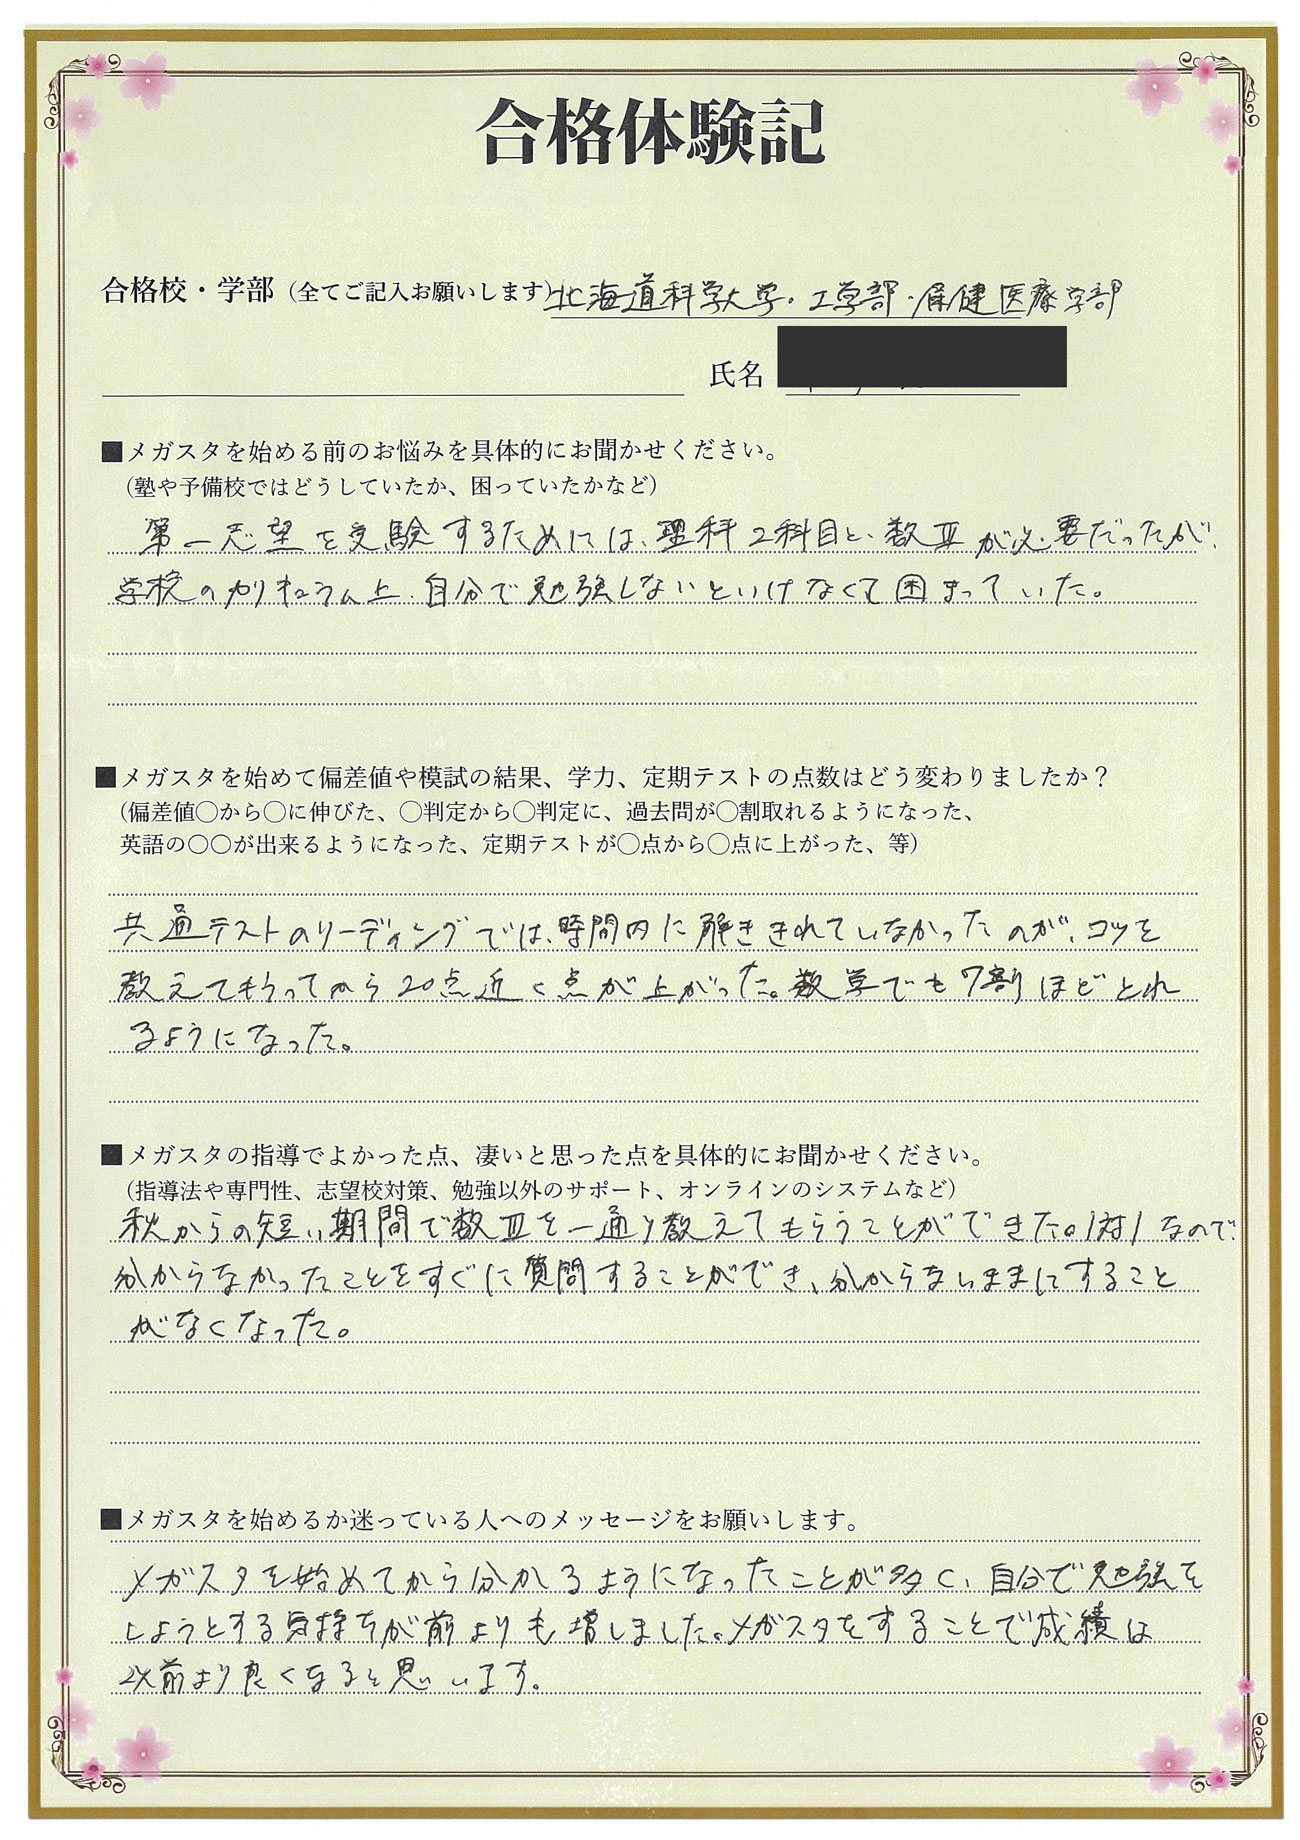 合格体験記
合格校・学部（全てご記入お願いします）北海道科学大学・工学部・保健医療学部
氏名
■メガスタを始める前のお悩みを具体的にお聞かせください。
（塾や予備校ではどうしていたか、困っていたかなど）
第一志望を受験するためには、理科2科目と、数Ⅲが必要だったが、
学校のカリキュラム上、自分で勉強しないといけなくて困まっていた。
■メガスタを始めて偏差値や模試の結果、学力、定期テストの点数はどう変わりましたか？
（偏差値○から○に伸びた、○判定から○判定に、過去問が○割取れるようになった、
英語の○○が出来るようになった、定期テストが○点から○点に上がった、等）
共通テストのリーディングでは、時間内に解ききれていなかったのが、コツを
教えてもらってから20点近く点が上がった。数学でも7割ほどとれ
るようになった。
■メガスタの指導でよかった点、凄いと思った点を具体的にお聞かせください。
（指導法や専門性、志望校対策、勉強以外のサポート、オンラインのシステムなど）
秋からの短い期間で数Ⅲを一通り教えてもらうことができた。1対1なので、
分からなかったことをすぐに質問することができ、分からないままにすること
がなくなった。
■メガスタを始めるか迷っている人へのメッセージをお願いします。
メガスタを始めてから分かるようになったことが多く、自分で勉強を
しようとする気持ちが前よりも増しました。メガスタをすることで成績は
以前より良くなると思います。